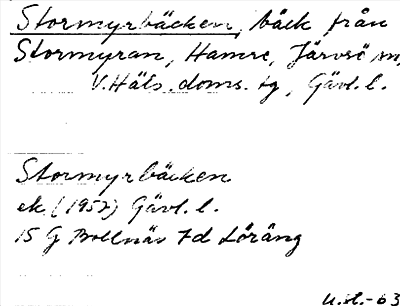 Stormyrbäcken, bäck från
Stormyran, Hamre, Järvsö sn,
V.Häls. doms. tg, Gävl. l.
Stormyrbäcken
ek. (1957) Gävl. l.
15 G Bollnäs 7d Löräng
U.H.-63